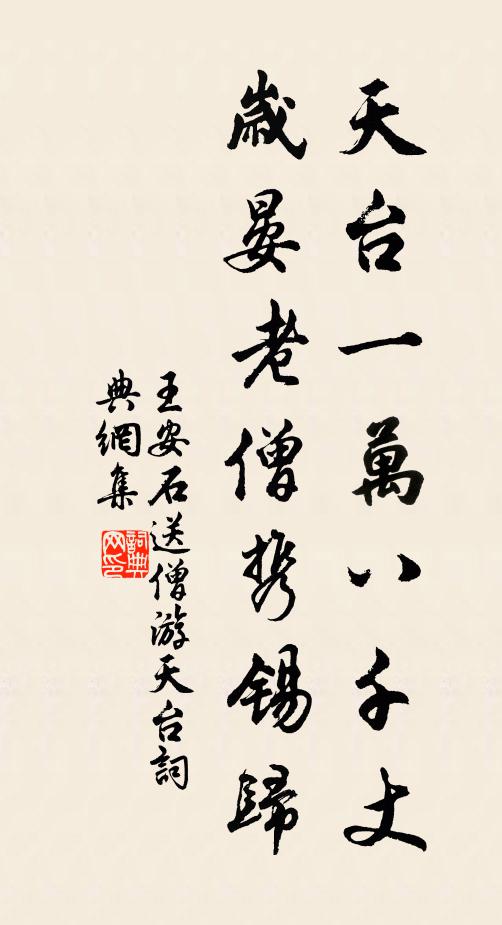 天台一萬八千丈
歲晏老僧携錫歸
王安石送僧游天台詞
典網集
詞典
网印